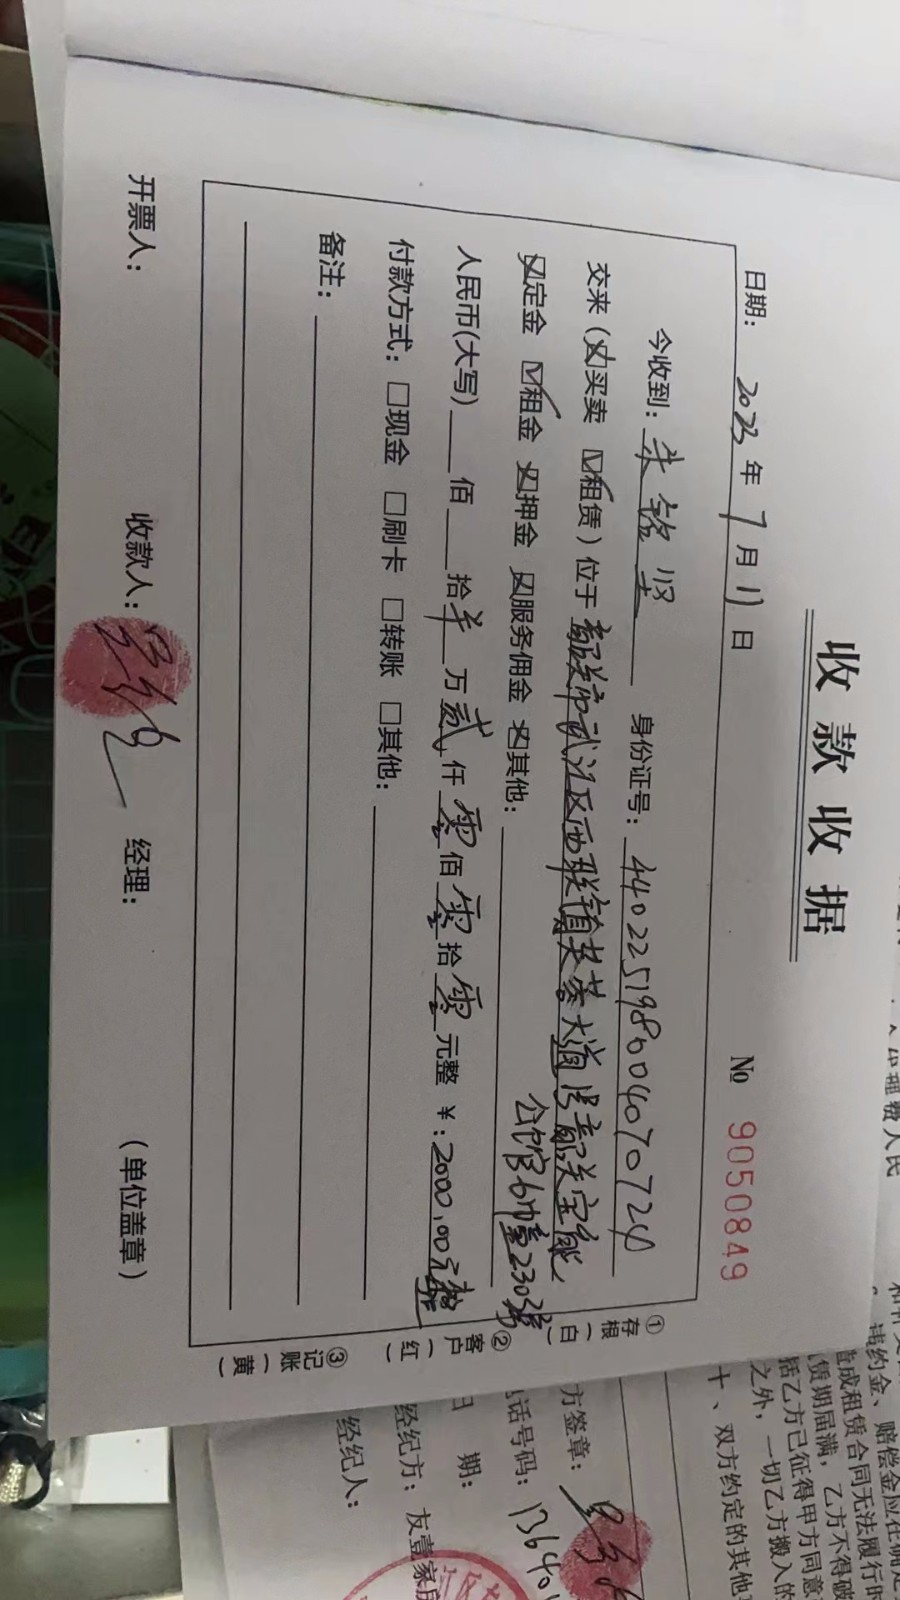 收款收据
№ 9050849
日期：2023年7月1日
今收到：朱铭坚 身份证号：440225198004070724
交来（☒买卖 ☑租赁）位于韶关市武江区西联镇芙蓉大道 号韶关宝能
公馆 2303
☒定金 ☑租金 ☒押金 ☒服务佣金 ☒其他：
人民币(大写) 佰 拾 万 贰仟零佰零拾零元整 ￥：2000.00元整
付款方式：□现金 □刷卡 □转账 □其他：
备注：
开票人： 收款人： 经理： （单位盖章）
①存根（白）
②客户（红）
③记账（黄）
代理费人民
违约金、赔偿金应在
造成租赁合同无法履行时
赁期届满，乙方不得破
括乙方已征得甲方同意
之外，一切乙方搬入的
十、双方约定的其他
方签章：
话号码：13640
日 期：
经纪方：友壹家房
经纪人：